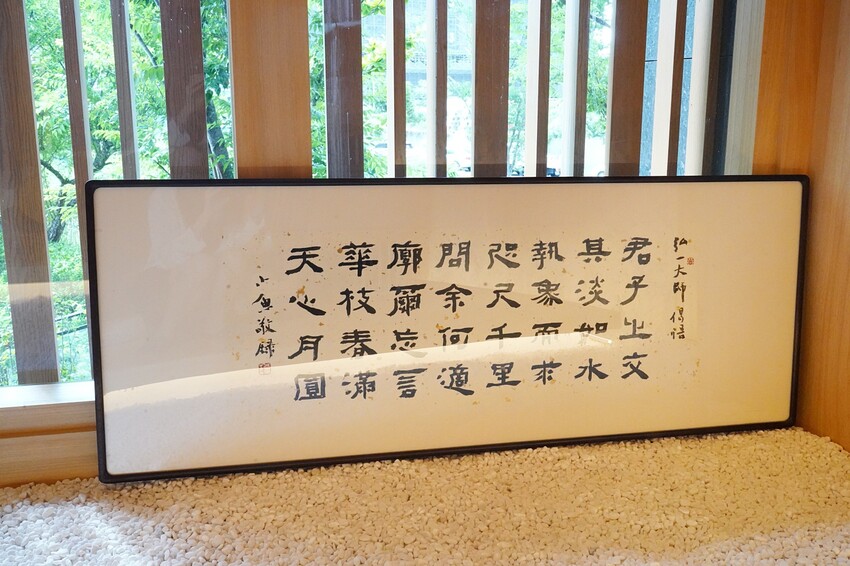 弘一大師偈語
君子之交
其淡如水
執象而求
咫尺千里
問余何適
廓爾忘言
華枝春滿
天心月圓
敬録